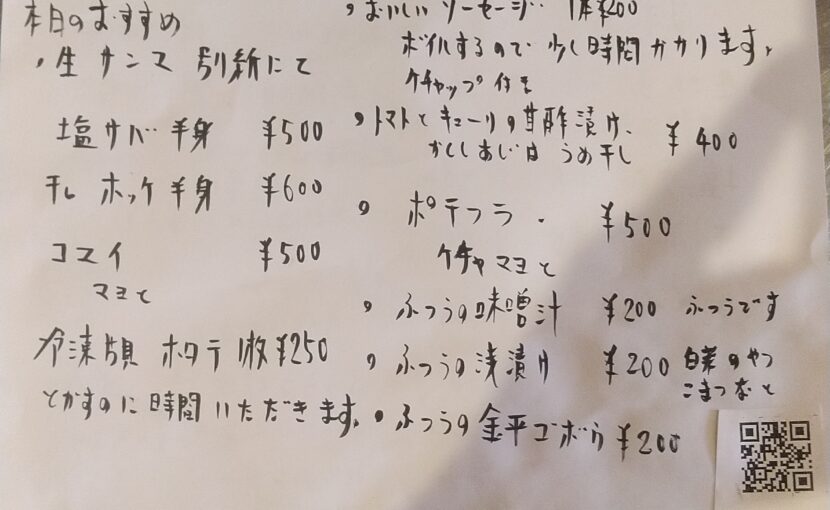 本日のおすすめ
・生サンマ 別紙にて
塩サバ半身 ¥500
干しホッケ半身 ¥600
コマイ ¥500
マヨと
冷凍 ホタテ 1枚¥250
とかすのに時間いただきます。
・おいしいソーセージ 1本¥200
ボイルするので少し時間かかります。
ケチャップ付き
・トマトとキューリの甘酢漬け、
かくしあじは うめ干し ¥400
・ポテフラ. ¥500
ケチャマヨと
・ふつうの味噌汁 ¥200 ふつうです
・ふつうの浅漬け ¥200 白菜のやつ
こまつなと
・ふつうの金平ゴボウ ¥200